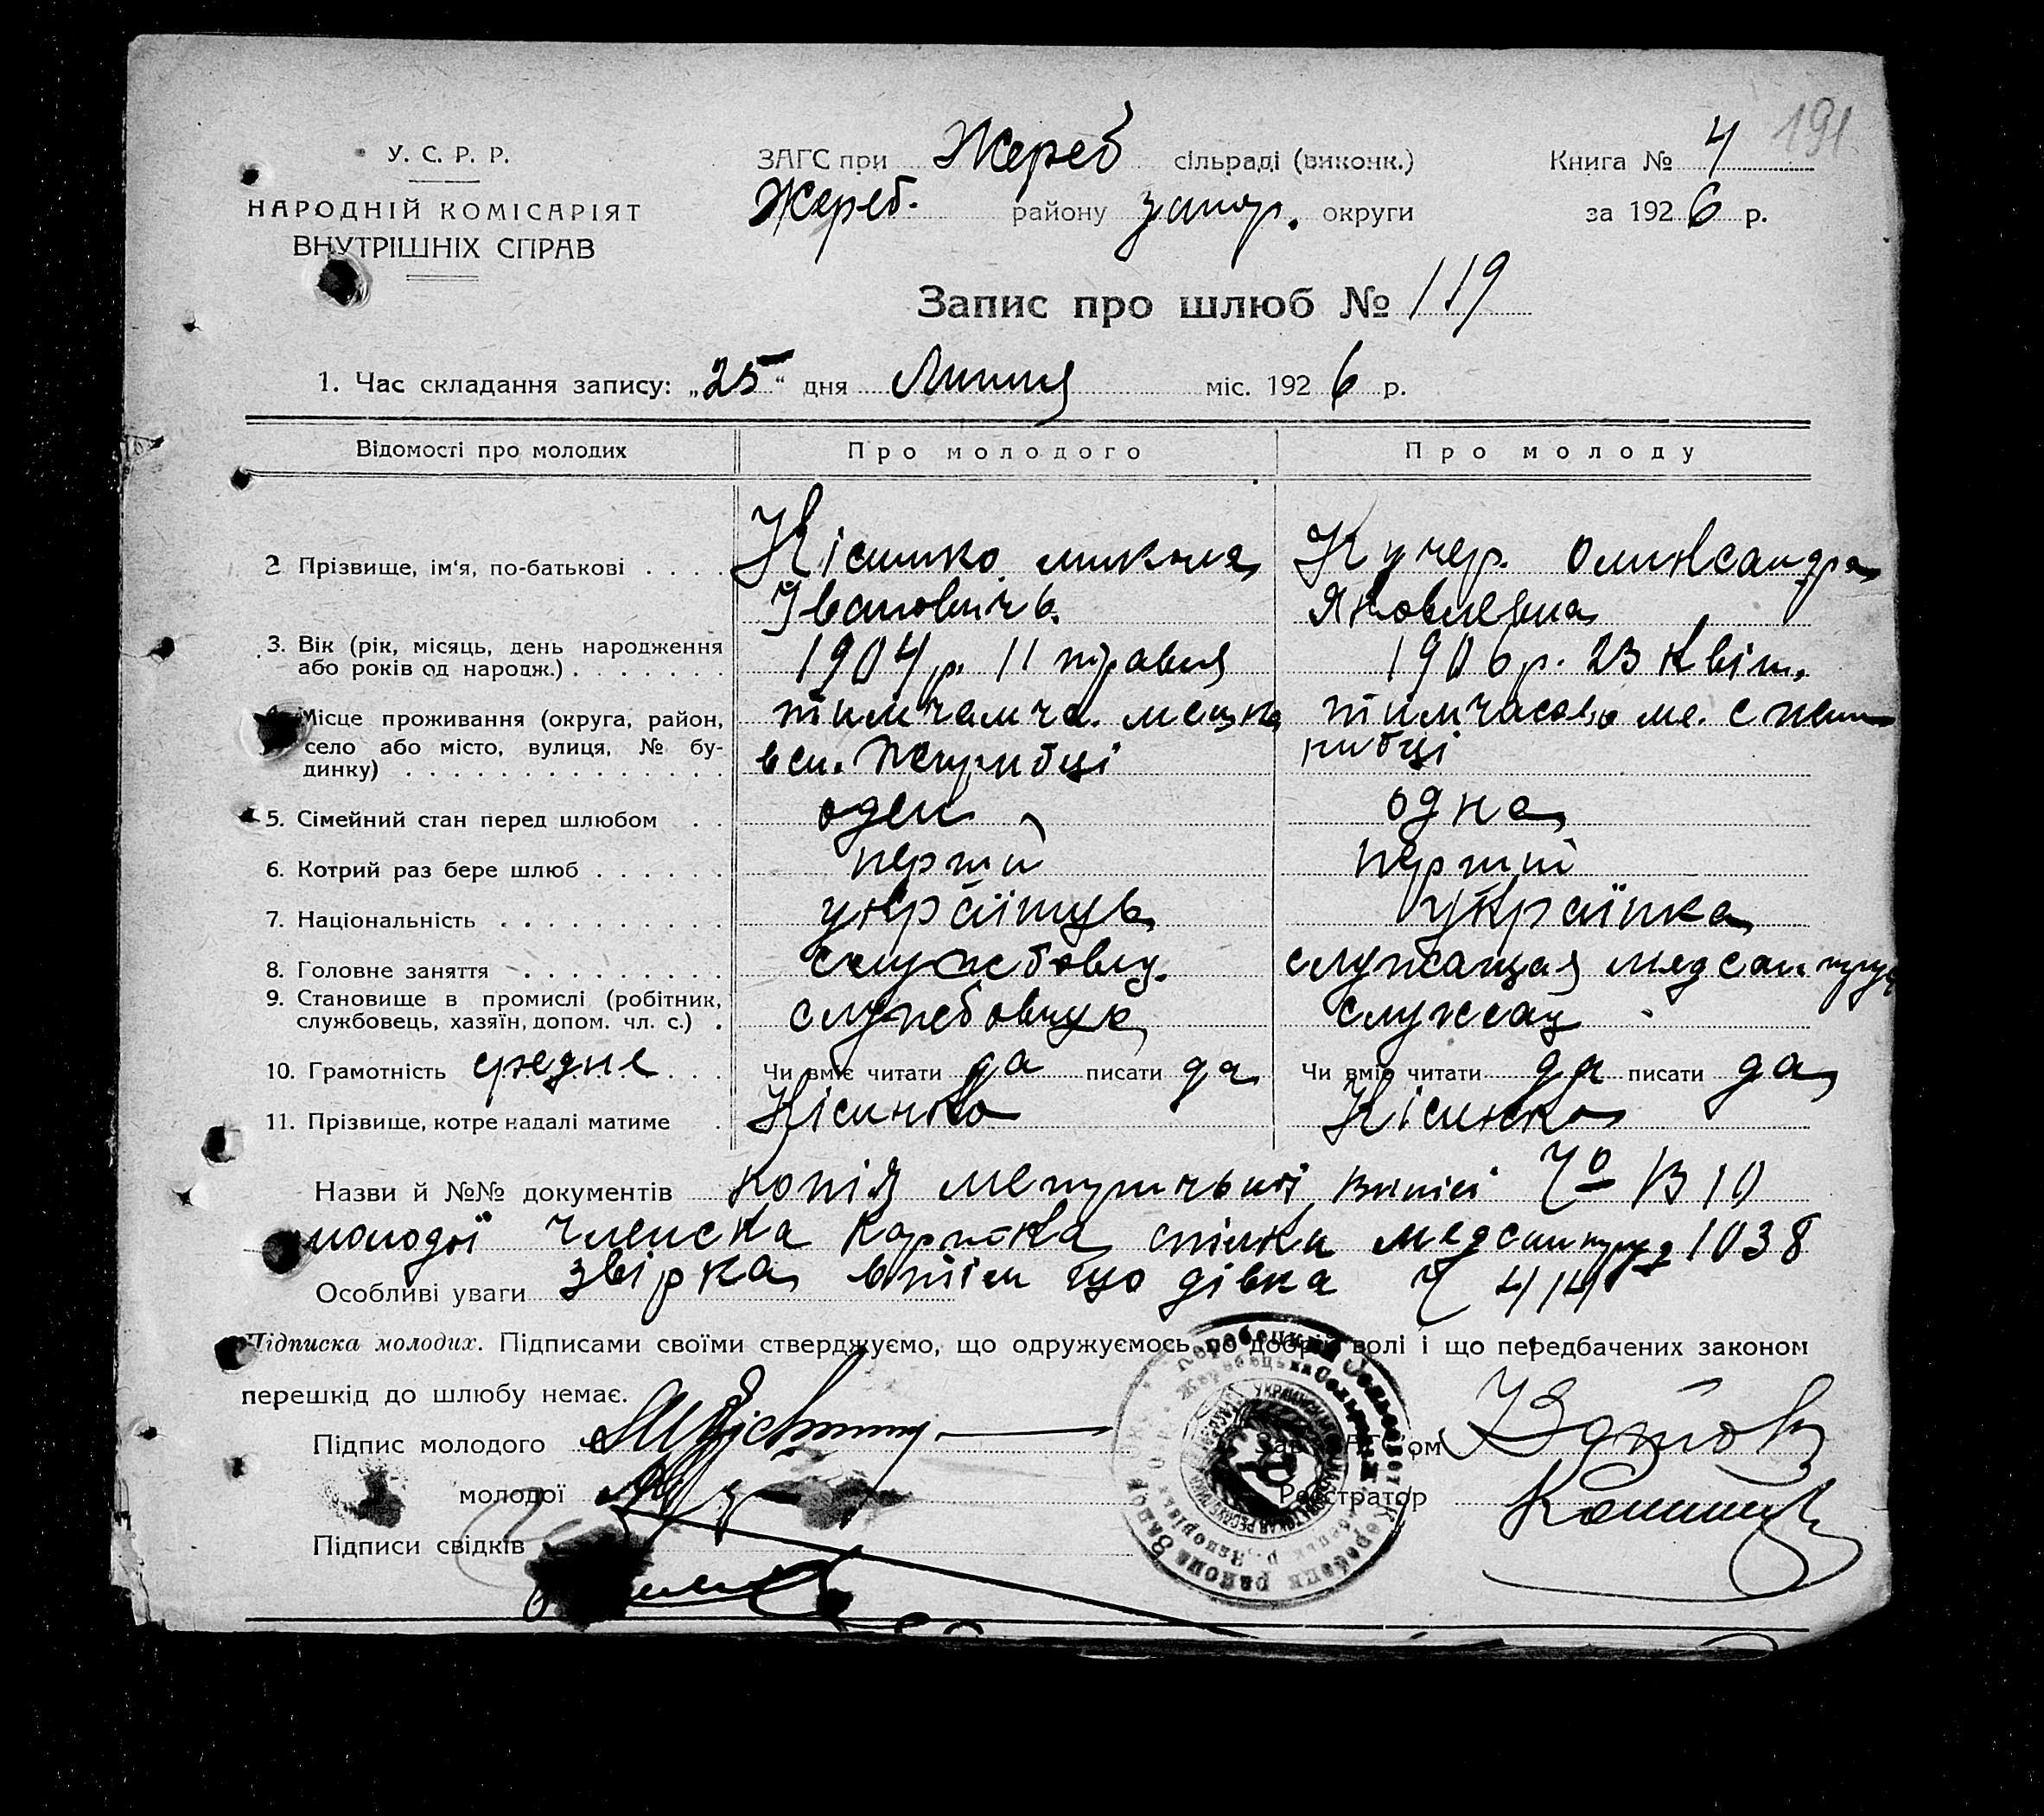 191
У. С. Р. Р.
НАРОДНІЙ КОМІСАРІЯТ
ВНУТРІШНІХ СПРАВ
ЗАГС при Жереб сільраді (виконк.)
Жереб. району запор. округи
Книга № 4
за 1926 р.
Запис про шлюб № 119
1. Час складання запису: „25“ дня Липня міс. 1926 р.
Відомості про молодих Про молодого Про молоду
2 Прізвище, ім'я, по-батькові . . . . Кісинко микола Кучер. Олександра
Івановичь. Яковлевна
3. Вік (рік, місяць, день народження
або років од народж.) . . . . . . . 1904 р. 11 травня 1906 р. 23 Квіт.
4. Місце проживання (округа, район,
село або місто, вулиця, № бу-
динку) . . . . . . . . . . . . . . в сл. Жеребці
5. Сімейний стан перед шлюбом . . оден одна
6. Котрий раз бере шлюб . . . . . . перший перший
7. Національність . . . . . . . . . . українць українка
8. Головне заняття . . . . . . . . . службовц. служащая медсантруд
9. Становище в промислі (робітник,
службовець, хазяїн, допом. чл. с.) . служащ
10. Грамотність средне . . . Чи вміє читати да писати да Чи вміє читати да писати да
11. Прізвище, котре надалі матиме . Кісинко Кісинко
Назви й №№ документів копія
молодої членска карточка спілки медсантруд 1038
Особливі уваги звірка в тім що дівка 414
Підписка молодих. Підписами своїми стверджуємо, що одружуємось по добрій волі і що передбачених законом
перешкід до шлюбу немає.
Підпис молодого
молодої
Підписи свідків
Зав. ЗАГС'ом
Реєстратор